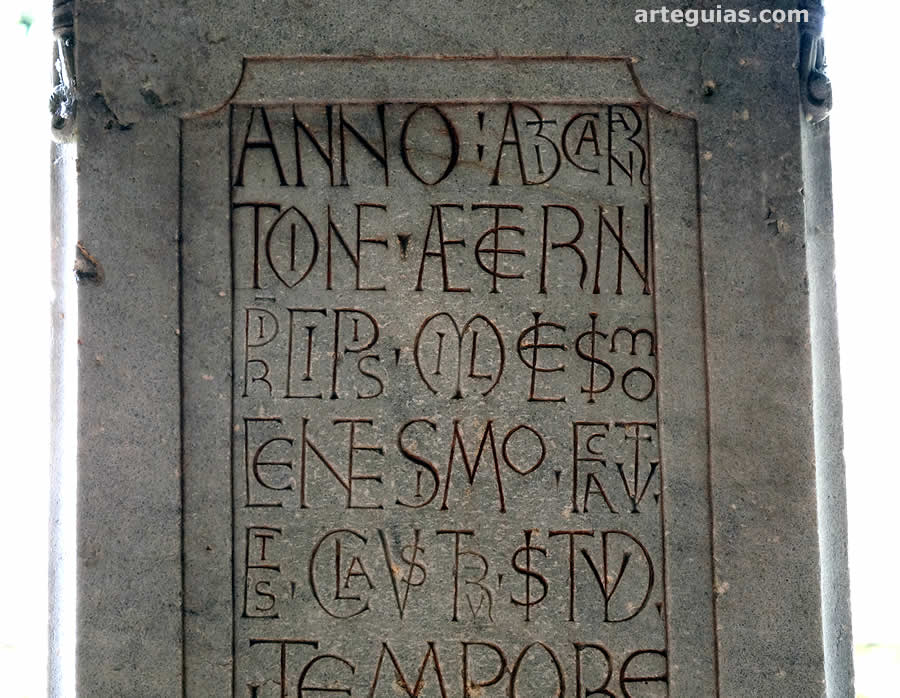 arteguias.com
ANNO : AB INCARNA
TIONE · AETERNI
PRINCIPIS · MILLESIMO
CENTESIMO · FACTV·
EST · CLAVSTRV · ISTVD ·
TEMPORE